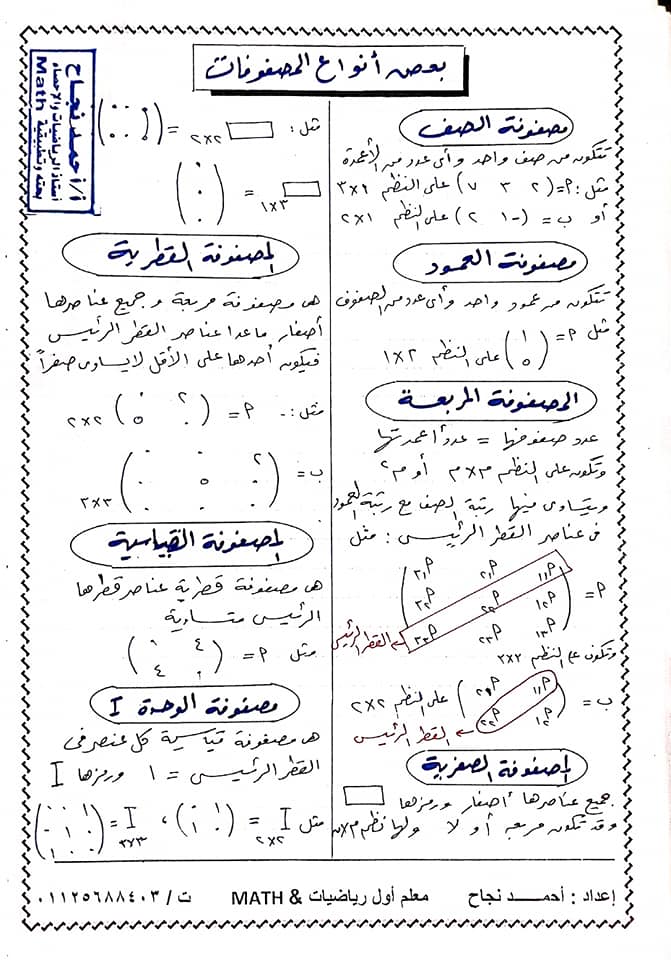 بعض أنواع المصفوفات
أ/ أحمد نجاح
أستاذ الرياضيات والإحصاء
بحته وتطبيقية
Math
مصفوفة الصف
تتكون من صف واحد وأى عدد من الأعمدة
مثل: ٢) = P ٣ ٧) على النظم ١×٣
أو ب = (-١ ٢) على النظم ١×٢
مصفوفة العمود
تتكون من عمود واحد وأى عدد من الصفوف
مثل P = (١ ٥) على النظم ٢×١
المصفوفة المربعة
عدد صفوفها = عدد أعمدتها
وتكون على النظم م×م أو م٢
ويتساوى فيها رتبة الصف مع رتبة العمود
فى عناصر القطر الرئيسى : مثل
P = 
P١١ P٢١ P٣١
P١٢ P٢٢ P٣٢
P١٣ P٢٣ P٣٣
القطر الرئيسى
وتكون على النظم ٣×٣
ب =
P١١ P٢١
P١٢ P٢٢
على النظم ٢×٢
القطر الرئيسى
المصفوفة الصفرية
جميع عناصرها أصفار ورمزها
وقد تكون مربعه أو لا ولها نظم م×ن
مثل : ٢×٢ =
(٠ ٠
٠ ٠)
٣×١ =
(٠
٠
٠)
المصفوفة القطرية
هى مصفوفة مربعة وجميع عناصرها
أصفار ماعدا عناصر القطر الرئيسى
فيكون أحدها على الأقل لايساوى صفراً
مثل :- P =
(٢ ٠
٠ ٥) ٢×٢
ب =
(٢ ٠ ٠
٠ ٥ ٠
٠ ٠ ٠) ٣×٣
المصفوفة القياسية
هى مصفوفة قطرية عناصر قطرها
الرئيسى متساوية
مثل P =
(٤ ٠
٠ ٤)
مصفوفة الوحدة I
هى مصفوفة قياسية كل عنصر فى
القطر الرئيسى = ١ ورمزها I
مثل I ٢×٢ =
(١ ٠
٠ ١) ،
I ٣×٣ =
(١ ٠ ٠
٠ ١ ٠
٠ ٠ ١)
إعداد : أحمـــد نجاح معلم أول رياضيات & MATH ت / ٠١١٢٥٦٨٨٤٠٣